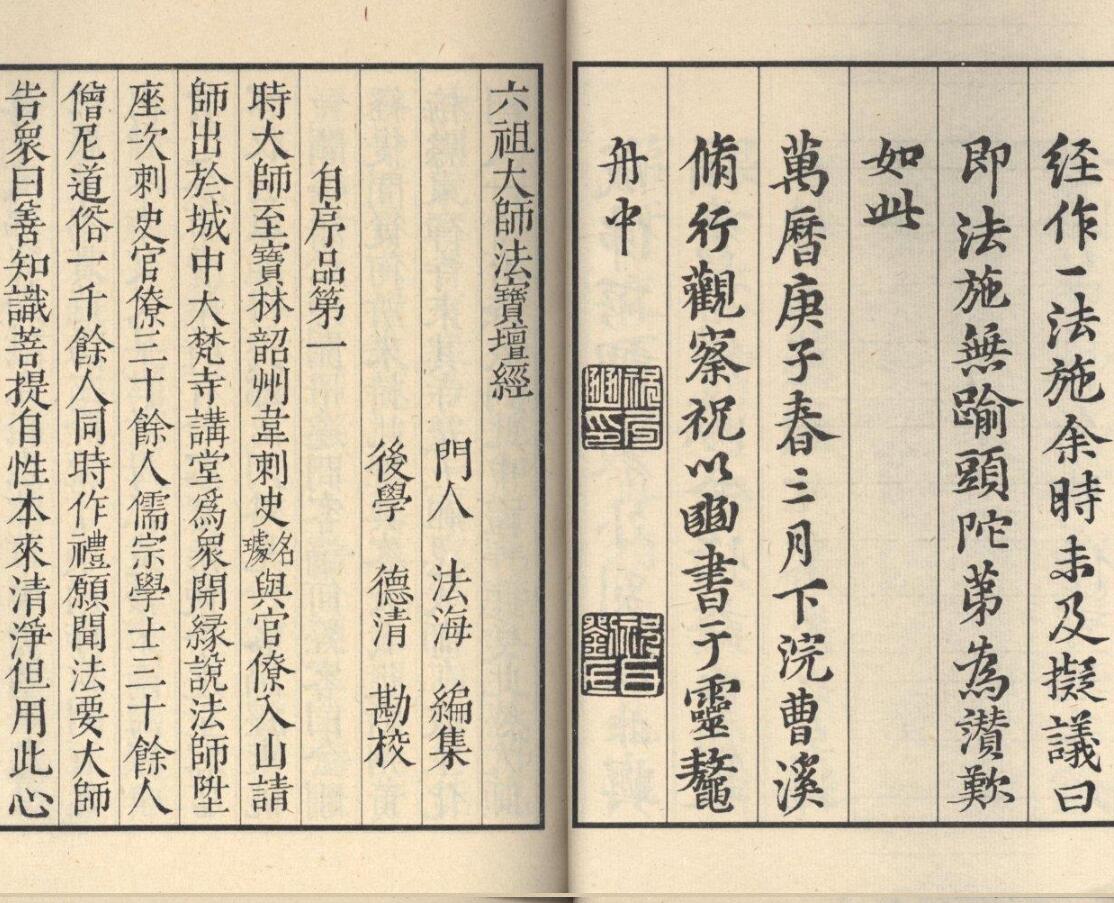 经作一法施余時未及擬議曰
即法施無踰頭陀苐為讃歎
如此
萬曆庚子春三月下浣曹溪
脩行觀察祝以豳書于靈鼇
舟中
六祖大師法寶壇經
門人 法海 編集
後學 德清 勘校
自序品第一
時大師至寶林韶州韋刺史名璩與官僚入山請
師出於城中大梵寺講堂爲衆開緣說法師陞
座次刺史官僚三十餘人儒宗學士三十餘人
僧尼道俗一千餘人同時作禮願聞法要大師
告衆曰善知識菩提自性本來清淨但用此心